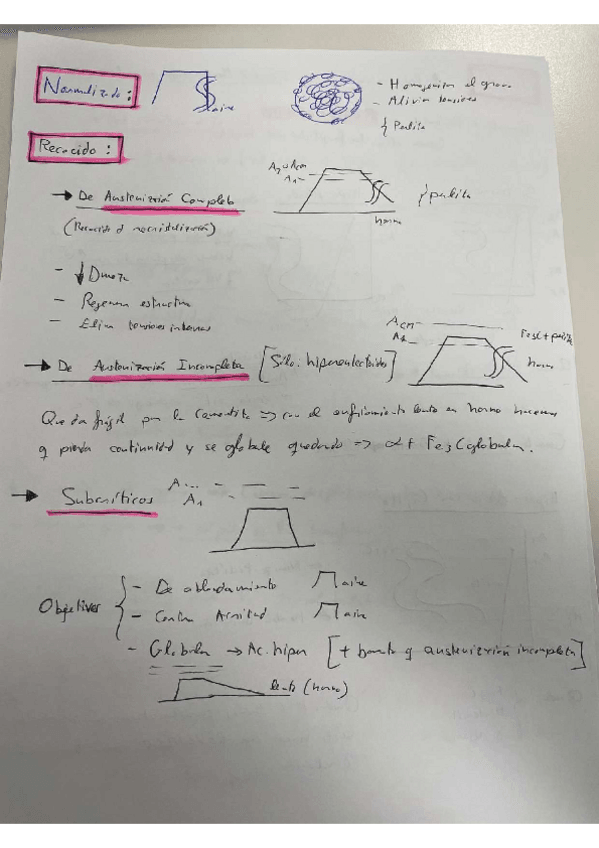 Normalizado:
aire
- Homogeniza el grano
- Alivia tensiones
Perlita
Recocido:
A3 o Acm
A1
→ De Austenización Completa
perlita
horno
(Recocido d recristalización)
- ↓ Dureza
- Regenera estructura
- Elim tensiones internas
Acm
A1
→ De Austenización Incompleta [Sólo. hipereutectoides]
horno
Queda frágil por la Cementita => con el enfriamiento lento en horno hacemos
q pierda continuidad y se globule quedando => α + Fe3C globular.
→ Subcríticos
A...
A1
Objetivos
- De ablandamiento aire
- Contra Acritud aire
- Globular → Ac. hiper [+ barato q austenización incompleta]
lento (horno)